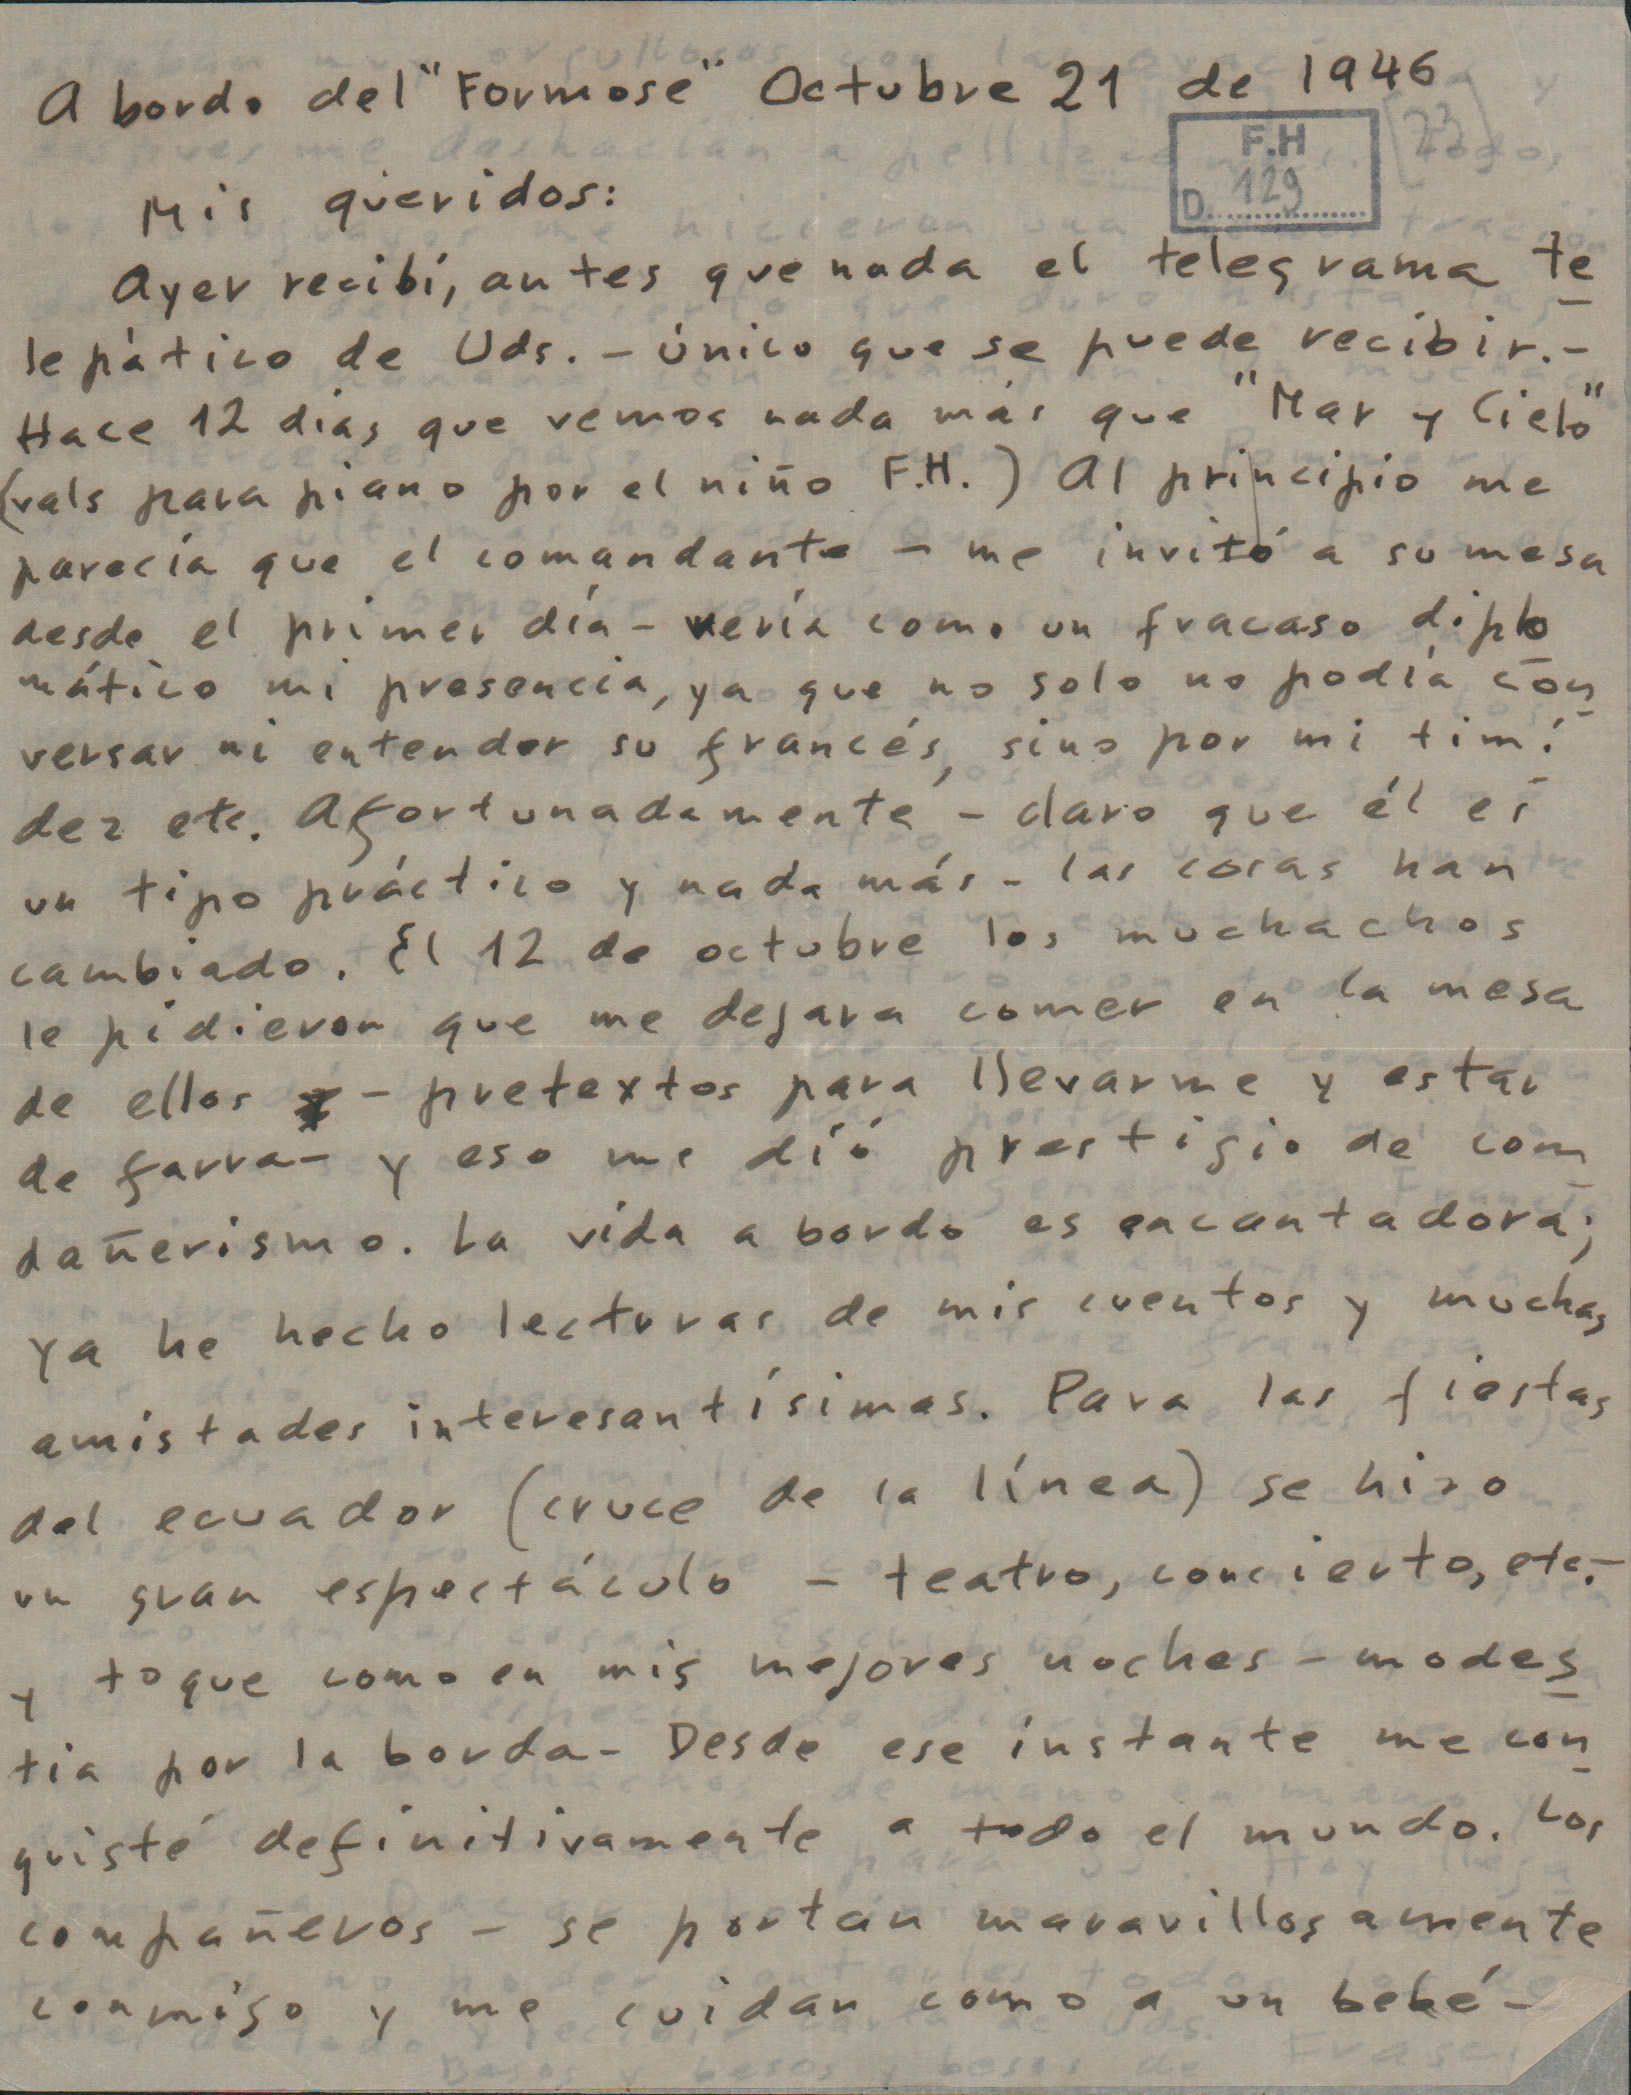 A bordo del "Formose" Octubre 21 de 1946
F.H
D. 129
(73)
Mis queridos:
Ayer recibí, antes que nada el telegrama te
lepático de Uds. - único que se puede recibir. -
Hace 12 días que vemos nada más que "Mar y Cielo"
(vals para piano por el niño F.H.) Al principio me
parecía que el comandante - me invitó a su mesa
desde el primer día - vería como un fracaso diplo
mático mi presencia, ya que no solo no podía con
versar ni entender su francés, sino por mi timi
dez etc. Afortunadamente - claro que él es
un tipo práctico y nada más - las cosas han
cambiado. El 12 de octubre los muchachos
le pidieron que me dejara comer en la mesa
de ellos - pretextos para llevarme y estar
de farra - y eso me dió prestigio de com
pañerismo. La vida a bordo es encantadora;
ya he hecho lecturas de mis cuentos y muchas
amistades interesantísimas. Para las fiestas
del ecuador (cruce de la línea) se hizo
un gran espectáculo - teatro, concierto, etc. -
y toque como en mis mejores noches - modes
tia por la borda - Desde ese instante me con
quisté definitivamente a todo el mundo. Los
compañeros - se portan maravillosamente
conmigo y me cuidan como a un bebé -